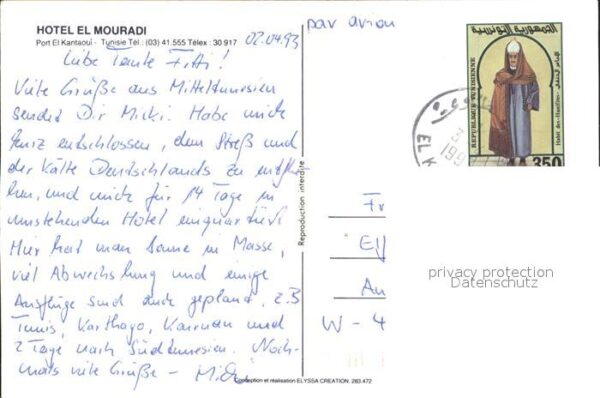 HOTEL EL MOURADI
Port El Kantaoui - Tunisie Tél.: (03) 41.555 Télex : 30 917
02.04.93
Liebe Tante Fetti!
Viele Grüße aus Mitteltunesien
sendet Dir Micki. Habe mich
kurz entschlossen, dem Streß und
der Kälte Deutschlands zu entflie-
hen, und mich für 14 Tage in
umstehendem Hotel einquartiert
Hier hat man Sonne in Masse,
viel Abwechslung und einige
Ausflüge sind auch geplant, z.B
Tunis, Karthago, Kairuan und
2 Tage nach Südtunesien. Noch-
mals viele Grüße -
Conception et réalisation ELYSSA CREATION. 283.472
Reproduction interdite
par avion
الجمهورية التونسية
REPUBLIQUE TUNISIENNE
Habit des Hanéfites
350
EL K
199
Fr
Eff
An
W - 4
privacy protection
Datenschutz